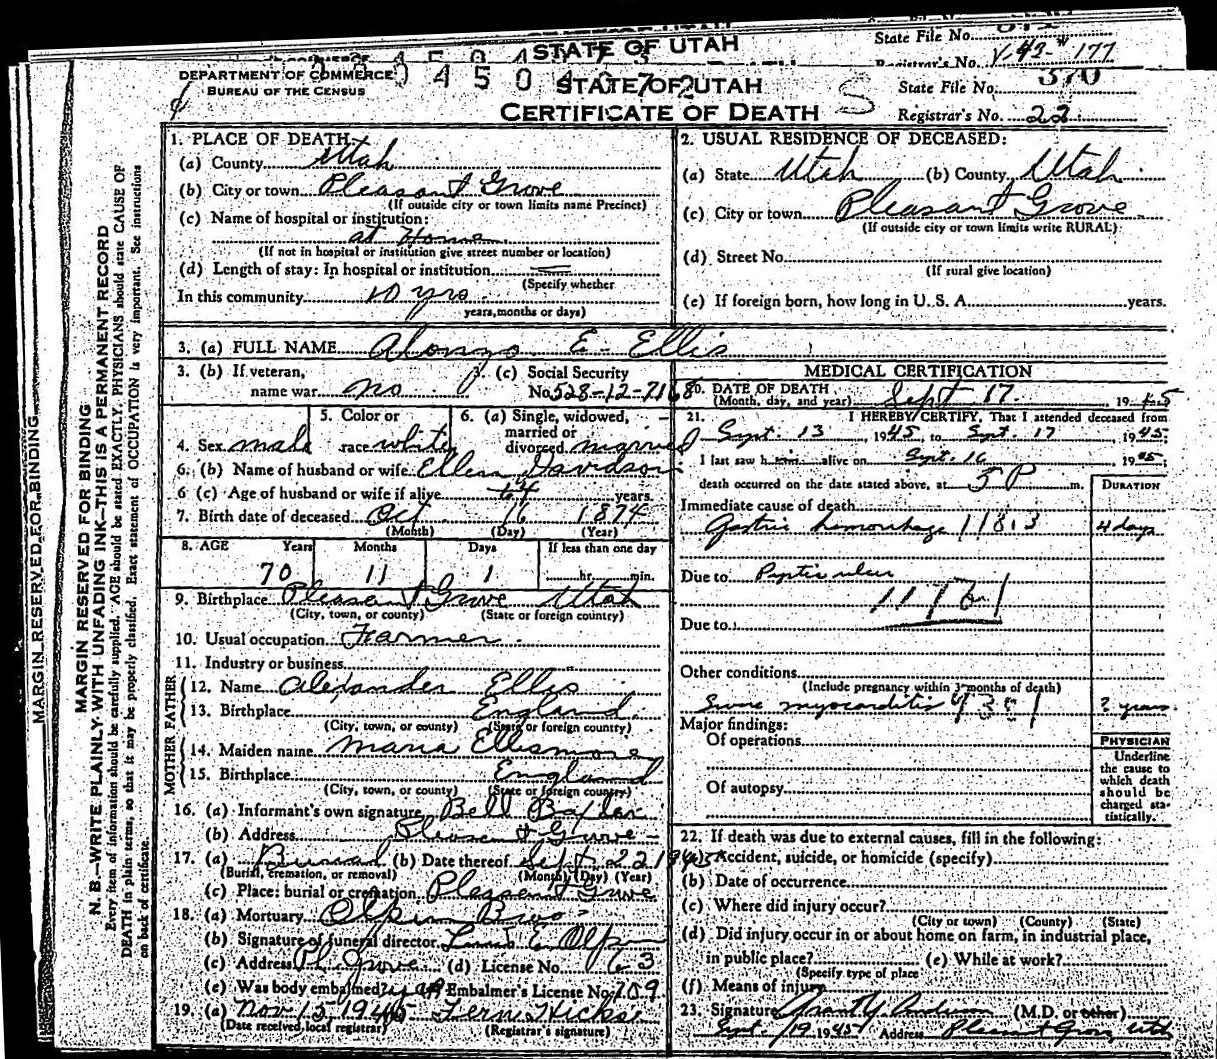 STATE OF UTAH
State File No.
Registrar's No. V-43-177
DEPARTMENT OF COMMERCE
BUREAU OF THE CENSUS
STATE OF UTAH
CERTIFICATE OF DEATH
State File No. 370
Registrar's No. 22
MARGIN RESERVED FOR BINDING
MARGIN RESERVED FOR BINDING
N. B.—WRITE PLAINLY WITH UNFADING INK—THIS IS A PERMANENT RECORD
Every item of information should be carefully supplied. AGE should be stated EXACTLY. PHYSICIANS should state CAUSE OF
DEATH in plain terms, so that it may be properly classified. Exact statement of OCCUPATION is very important. See instructions
on back of certificate.
1. PLACE OF DEATH:
(a) County Utah
(b) City or town Pleasant Grove
(If outside city or town limits name Precinct)
(c) Name of hospital or institution:
at Home
(If not in hospital or institution give street number or location)
(d) Length of stay: In hospital or institution —
(Specify whether
In this community 10 yrs.
years, months or days)
2. USUAL RESIDENCE OF DECEASED:
(a) State Utah (b) County Utah
(c) City or town Pleasant Grove
(If outside city or town limits write RURAL)
(d) Street No.
(If rural give location)
(e) If foreign born, how long in U. S. A. years.
3. (a) FULL NAME Alonzo E. Ellis
3. (b) If veteran,
name war no
3. (c) Social Security
No. 528-12-7168
4. Sex male
5. Color or
race white
6. (a) Single, widowed,
married or
divorced married
6. (b) Name of husband or wife Ellen Davidson
6 (c) Age of husband or wife if alive 64 years.
7. Birth date of deceased Oct 16 1874
(Month) (Day) (Year)
8. AGE Years Months Days If less than one day
70 11 1 hr. min.
9. Birthplace Pleasant Grove Utah
(City, town, or county) (State or foreign country)
10. Usual occupation Farmer
11. Industry or business
FATHER
12. Name Alexander Ellis
13. Birthplace England
(City, town, or county) (State or foreign country)
MOTHER
14. Maiden name Maria Ellismore
15. Birthplace England
(City, town, or county) (State or foreign country)
16. (a) Informant's own signature Bell Baxter
(b) Address Pleasant Grove
17. (a) Burial (b) Date thereof Sept 22 1945
(Burial, cremation, or removal) (Month) (Day) (Year)
(c) Place: burial or cremation Pleasant Grove
18. (a) Mortuary Olpin Bros.
(b) Signature of funeral director E. Olpin
(c) Address Pl. Grove (d) License No. 163
(e) Was body embalmed? yes Embalmer's License No. 109
19. (a) Nov 15, 1945 Fern Hicks
(Date received local registrar) (Registrar's signature)
MEDICAL CERTIFICATION
20. DATE OF DEATH
(Month, day, and year) Sept 17, 1945
21. I HEREBY CERTIFY, That I attended deceased from
Sept. 13, 1945, to Sept. 17 1945;
I last saw him alive on Sept. 16 1945,
death occurred on the date stated above, at 5 P m.
DURATION
Immediate cause of death
Gastric hemorrhage 118.3 4 days
Due to Peptic ulcer
Due to
Other conditions
(Include pregnancy within 3 months of death)
myocarditis ? years
Major findings:
Of operations
Of autopsy
PHYSICIAN
Underline
the cause to
which death
should be
charged sta-
tistically.
22. If death was due to external causes, fill in the following:
(a) Accident, suicide, or homicide (specify)
(b) Date of occurrence
(c) Where did injury occur?
(City or town) (County) (State)
(d) Did injury occur in or about home on farm, in industrial place,
in public place? (e) While at work?
(Specify type of place
(f) Means of injury
23. Signature Grant Y. Anderson (M.D. or other)
Sept 19, 1945 Address Pleasant Grove Utah